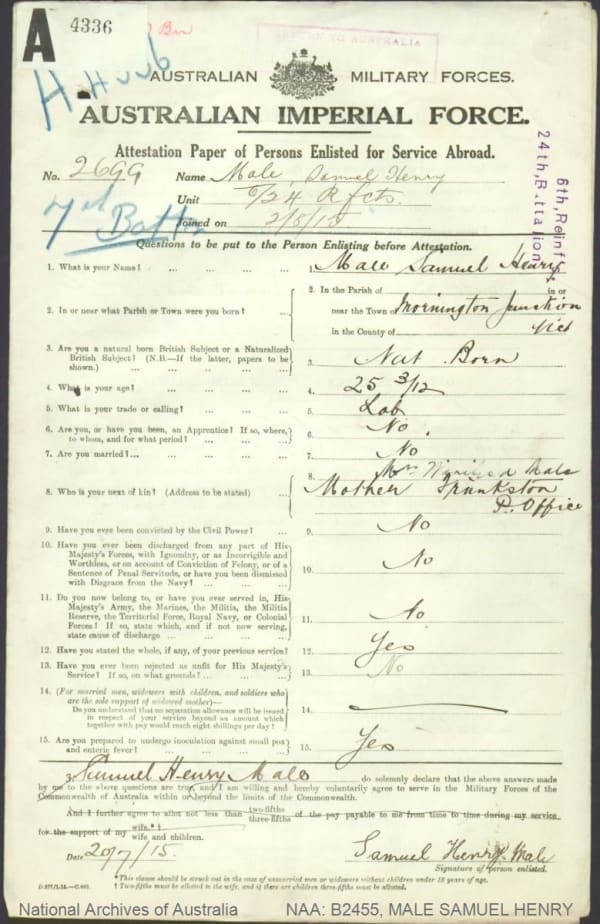 A
4336
H. 4336
RETURN TO AUSTRALIA
AUSTRALIAN MILITARY FORCES.
AUSTRALIAN IMPERIAL FORCE.
Attestation Paper of Persons Enlisted for Service Abroad.
No. 2699 Name Male, Samuel Henry
Unit 6/24 Rfcts.
Joined on 2/8/15
7th Batt.
6th, Reinf
24th, Battalion
Questions to be put to the Person Enlisting before Attestation.
1. What is your Name? ... ... ... ... 1. Male Samuel Henry
2. In or near what Parish or Town were you born? ... 2. In the Parish of in or
near the Town of Mornington Junction
in the County of Vict
3. Are you a natural born British Subject or a Naturalized
British Subject? (N.B.—If the latter, papers to be
shown.) ... ... ... ... 3. Nat. Born
4. What is your age? ... ... ... ... 4. 25 3/12
5. What is your trade or calling? ... ... ... 5. Lab
6. Are you, or have you been, an Apprentice? If so, where,
to whom, and for what period? ... ... ... 6. No
7. Are you married?... ... ... ... 7. No
8. Who is your next of kin? (Address to be stated) ... 8. Mrs Winifred Male
Mother Frankston
P. Office
9. Have you ever been convicted by the Civil Power? ... 9. No
10. Have you ever been discharged from any part of His
Majesty's Forces, with Ignominy, or as Incorrigible and
Worthless, or on account of Conviction of Felony, or of a
Sentence of Penal Servitude, or have you been dismissed
with Disgrace from the Navy? ... ... ... 10. No
11. Do you now belong to, or have you ever served in, His
Majesty's Army, the Marines, the Militia, the Militia
Reserve, the Territorial Force, Royal Navy, or Colonial
Forces? If so, state which, and if not now serving,
state cause of discharge ... ... ... 11. No
12. Have you stated the whole, if any, of your previous service? 12. Yes
13. Have you ever been rejected as unfit for His Majesty's
Service? If so, on what grounds? ... ... 13. No
14. (For married men, widowers with children, and soldiers who
are the sole support of widowed mother)—
Do you understand that no separation allowance will be issued
in respect of your service beyond an amount which
together with pay would reach eight shillings per day? 14.
15. Are you prepared to undergo inoculation against small pox
and enteric fever? ... ... ... 15. Yes
I, Samuel Henry Male do solemnly declare that the above answers made
by me to the above questions are true, and I am willing and hereby voluntarily agree to serve in the Military Forces of the
Commonwealth of Australia within or beyond the limits of the Commonwealth.
And I further agree to allot not less than two-fifths three-fifths of the pay payable to me from time to time during my service
for the support of my wife.*† wife and children.
Date 20/7/15. Samuel Henry Male
Signature of person enlisted.
*This clause should be struck out in the case of unmarried men or widowers without children under 18 years of age.
† Two-fifths must be allotted to the wife, and if there are children three-fifths must be allotted.
National Archives of Australia NAA: B2455, MALE SAMUEL HENRY